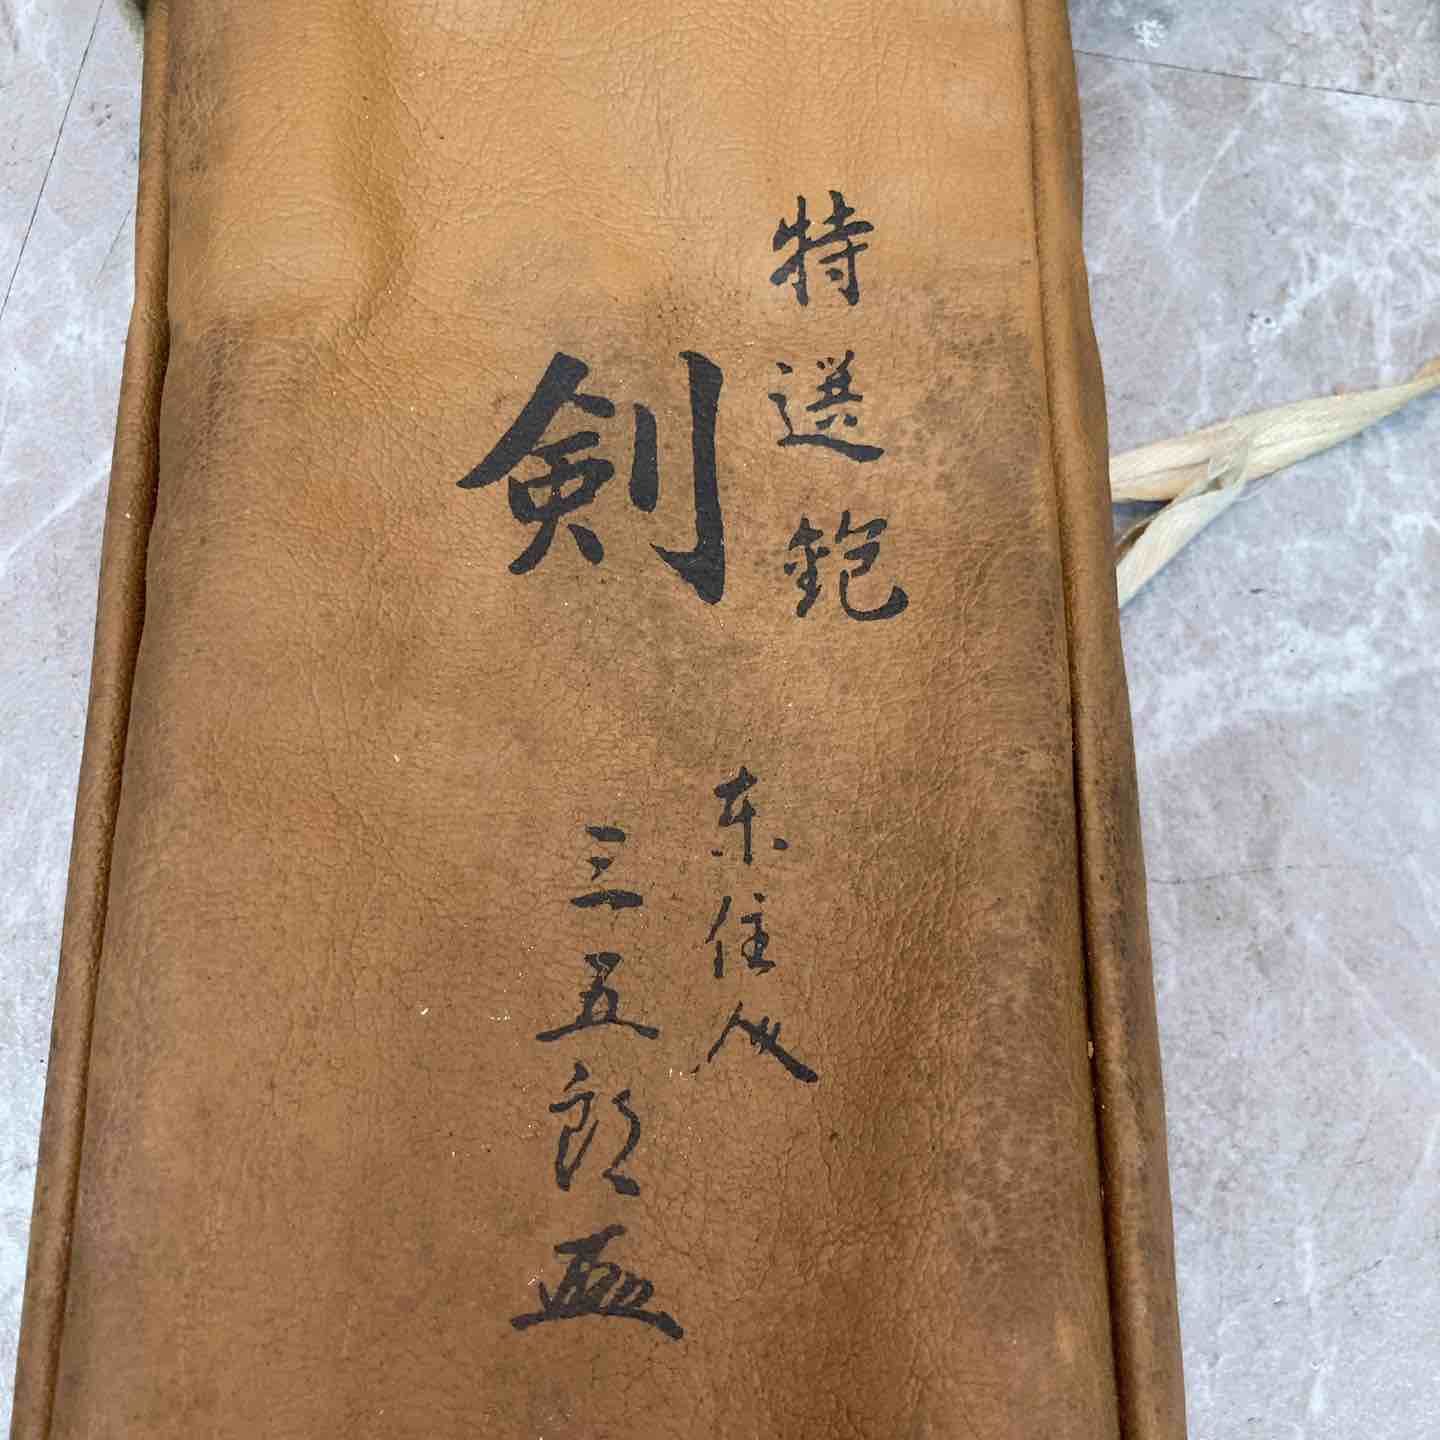 特選鉋
剣
東住人
三五郎